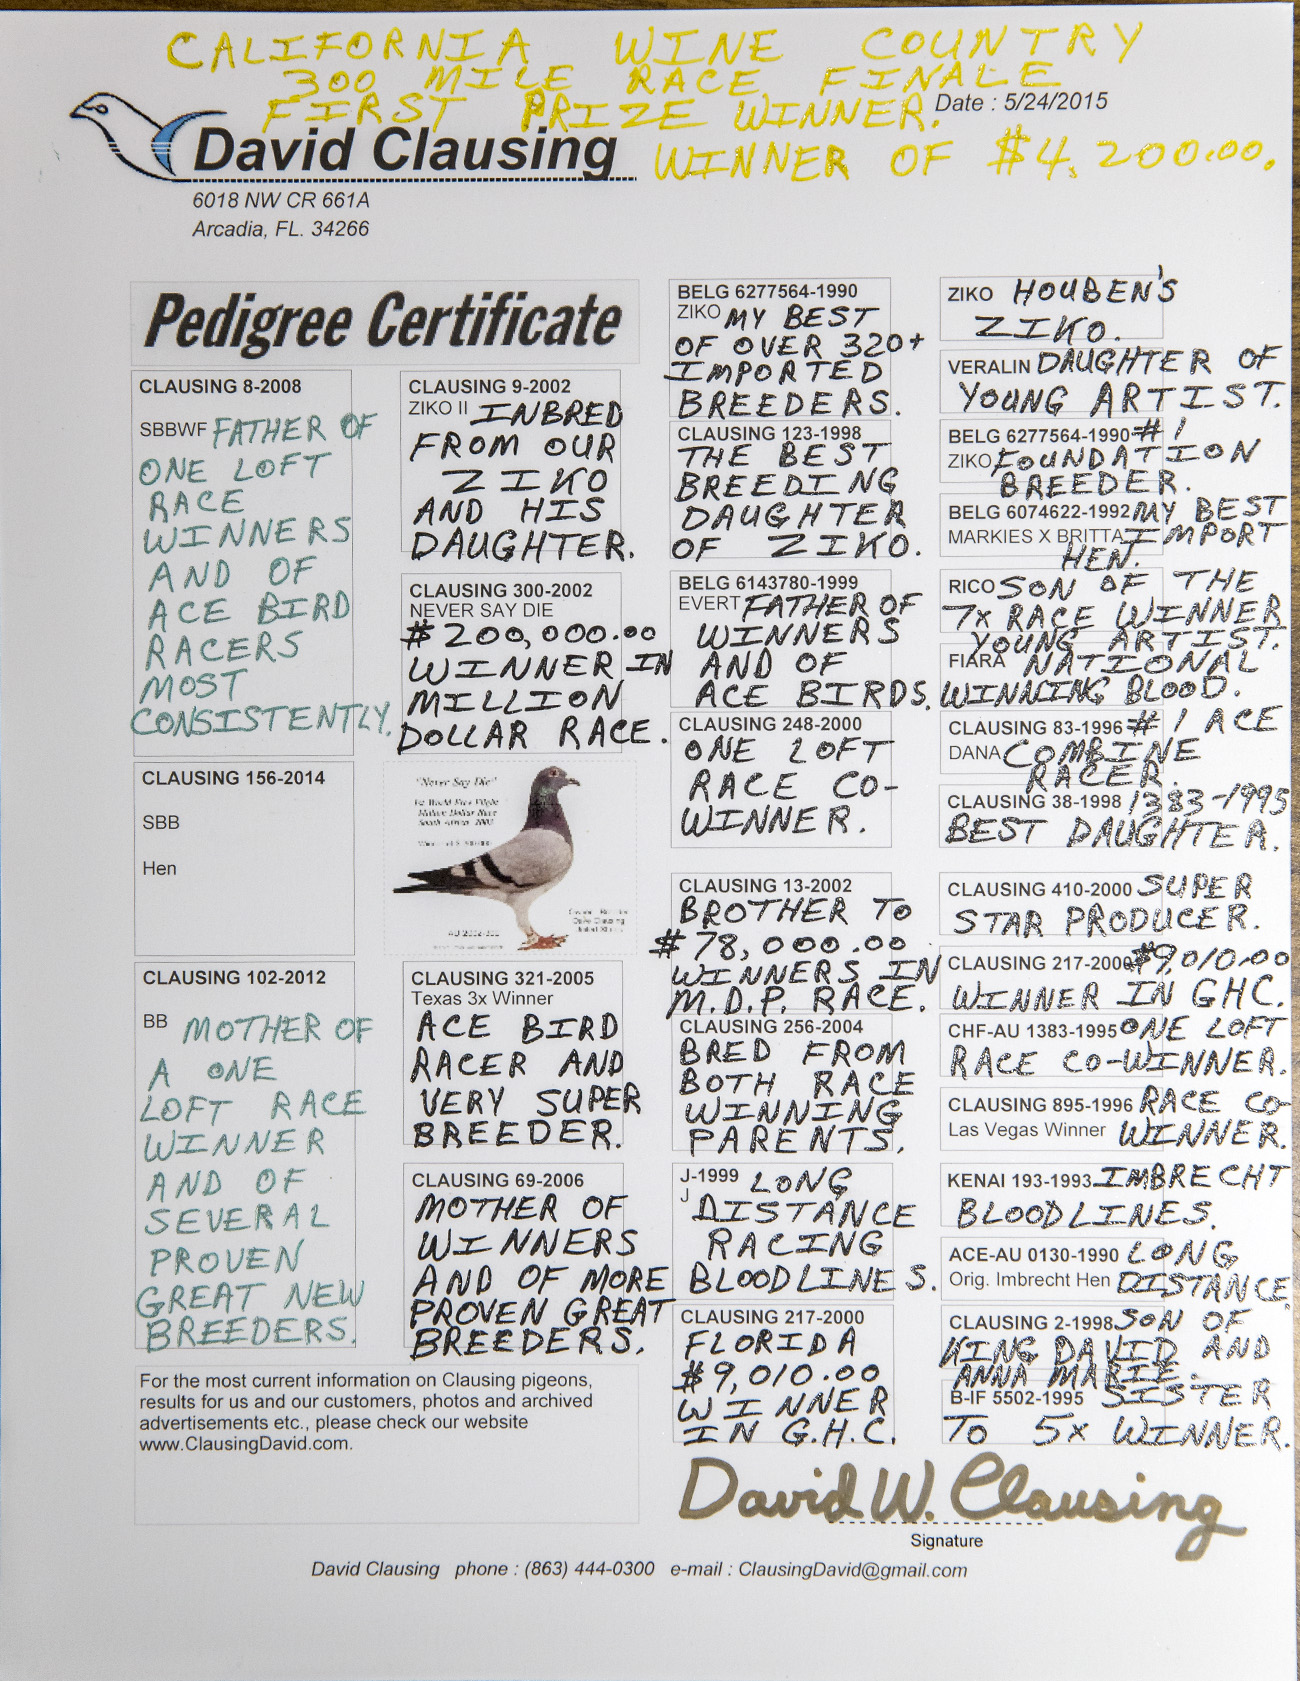 CALIFORNIA WINE COUNTRY
300 MILE RACE FINALE
FIRST PRIZE WINNER.
Date : 5/24/2015
David Clausing
WINNER OF $4,200.00.
6018 NW CR 661A
Arcadia, FL. 34266
Pedigree Certificate
CLAUSING 8-2008
SBBWF FATHER OF
ONE LOFT
RACE
WINNERS
AND OF
ACE BIRD
RACERS
MOST
CONSISTENTLY.
CLAUSING 156-2014
SBB
Hen
CLAUSING 102-2012
BB MOTHER OF
A ONE
LOFT RACE
WINNER
AND OF
SEVERAL
PROVEN
GREAT NEW
BREEDERS.
CLAUSING 9-2002
ZIKO II INBRED
FROM OUR
ZIKO
AND HIS
DAUGHTER.
CLAUSING 300-2002
NEVER SAY DIE
$200,000.00
WINNER IN
MILLION
DOLLAR RACE.
"Never Say Die"
Million Dollar Race
South Africa 2003
AU 2002-300
CLAUSING 321-2005
Texas 3x Winner
ACE BIRD
RACER AND
VERY SUPER
BREEDER.
CLAUSING 69-2006
MOTHER OF
WINNERS
AND OF MORE
PROVEN GREAT
BREEDERS.
BELG 6277564-1990
ZIKO MY BEST
OF OVER 320+
IMPORTED
BREEDERS.
CLAUSING 123-1998
THE BEST
BREEDING
DAUGHTER
OF ZIKO.
BELG 6143780-1999
EVERT FATHER OF
WINNERS
AND OF
ACE BIRDS.
CLAUSING 248-2000
ONE LOFT
RACE CO-
WINNER.
CLAUSING 13-2002
BROTHER TO
$78,000.00
WINNERS IN
M.D.P. RACE.
CLAUSING 256-2004
BRED FROM
BOTH RACE
WINNING
PARENTS.
J-1999 LONG
J DISTANCE
RACING
BLOODLINES.
CLAUSING 217-2000
FLORIDA
$9,010.00
WINNER
IN G.H.C.
ZIKO HOUBEN'S
ZIKO.
VERALIN DAUGHTER OF
YOUNG ARTIST.
BELG 6277564-1990 #1
ZIKO FOUNDATION
BREEDER.
BELG 6074622-1992 MY BEST
MARKIES X BRITTA IMPORT
HEN.
RICO SON OF THE
7X RACE WINNER
YOUNG ARTIST.
FIARA NATIONAL
WINNING BLOOD.
CLAUSING 83-1996 #1 ACE
DANA COMBINE
RACER.
CLAUSING 38-1998 1383-1995
BEST DAUGHTER.
CLAUSING 410-2000 SUPER
STAR PRODUCER.
CLAUSING 217-2000 $9,010.00
WINNER IN GHC.
CHF-AU 1383-1995 ONE LOFT
RACE CO-WINNER.
CLAUSING 895-1996 RACE CO-
Las Vegas Winner WINNER.
KENAI 193-1993 IMBRECHT
BLOODLINES.
ACE-AU 0130-1990 LONG
Orig. Imbrecht Hen DISTANCE
CLAUSING 2-1998 SON OF
KING DAVID AND
ANNA MARIE.
B-IF 5502-1995 SISTER
TO 5X WINNER.
For the most current information on Clausing pigeons,
results for us and our customers, photos and archived
advertisements etc., please check our website
www.ClausingDavid.com.
David W. Clausing
Signature
David Clausing phone : (863) 444-0300 e-mail : ClausingDavid@gmail.com